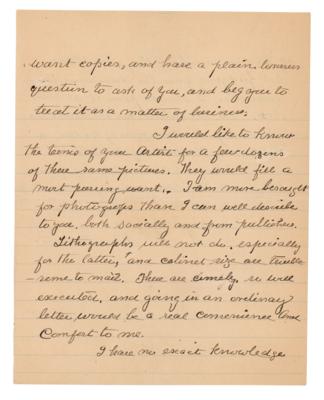 want copies, and have a plain business
question to ask of you, and beg you to
treat it as a matter of business.
I would like to know
the terms of your Artist for a few dozens
of these same pictures. They would fill a
most pressing want. I am more besought
for photographs than I can well describe
to you, both socially and from publishers.
Lithographs will not do, especially
for the latter, and cabinet size are trouble
-some to mail. These are comely, so well
executed, and going in an ordinary
letter, would be a real convenience and
Comfort to me.
I have no exact knowledge